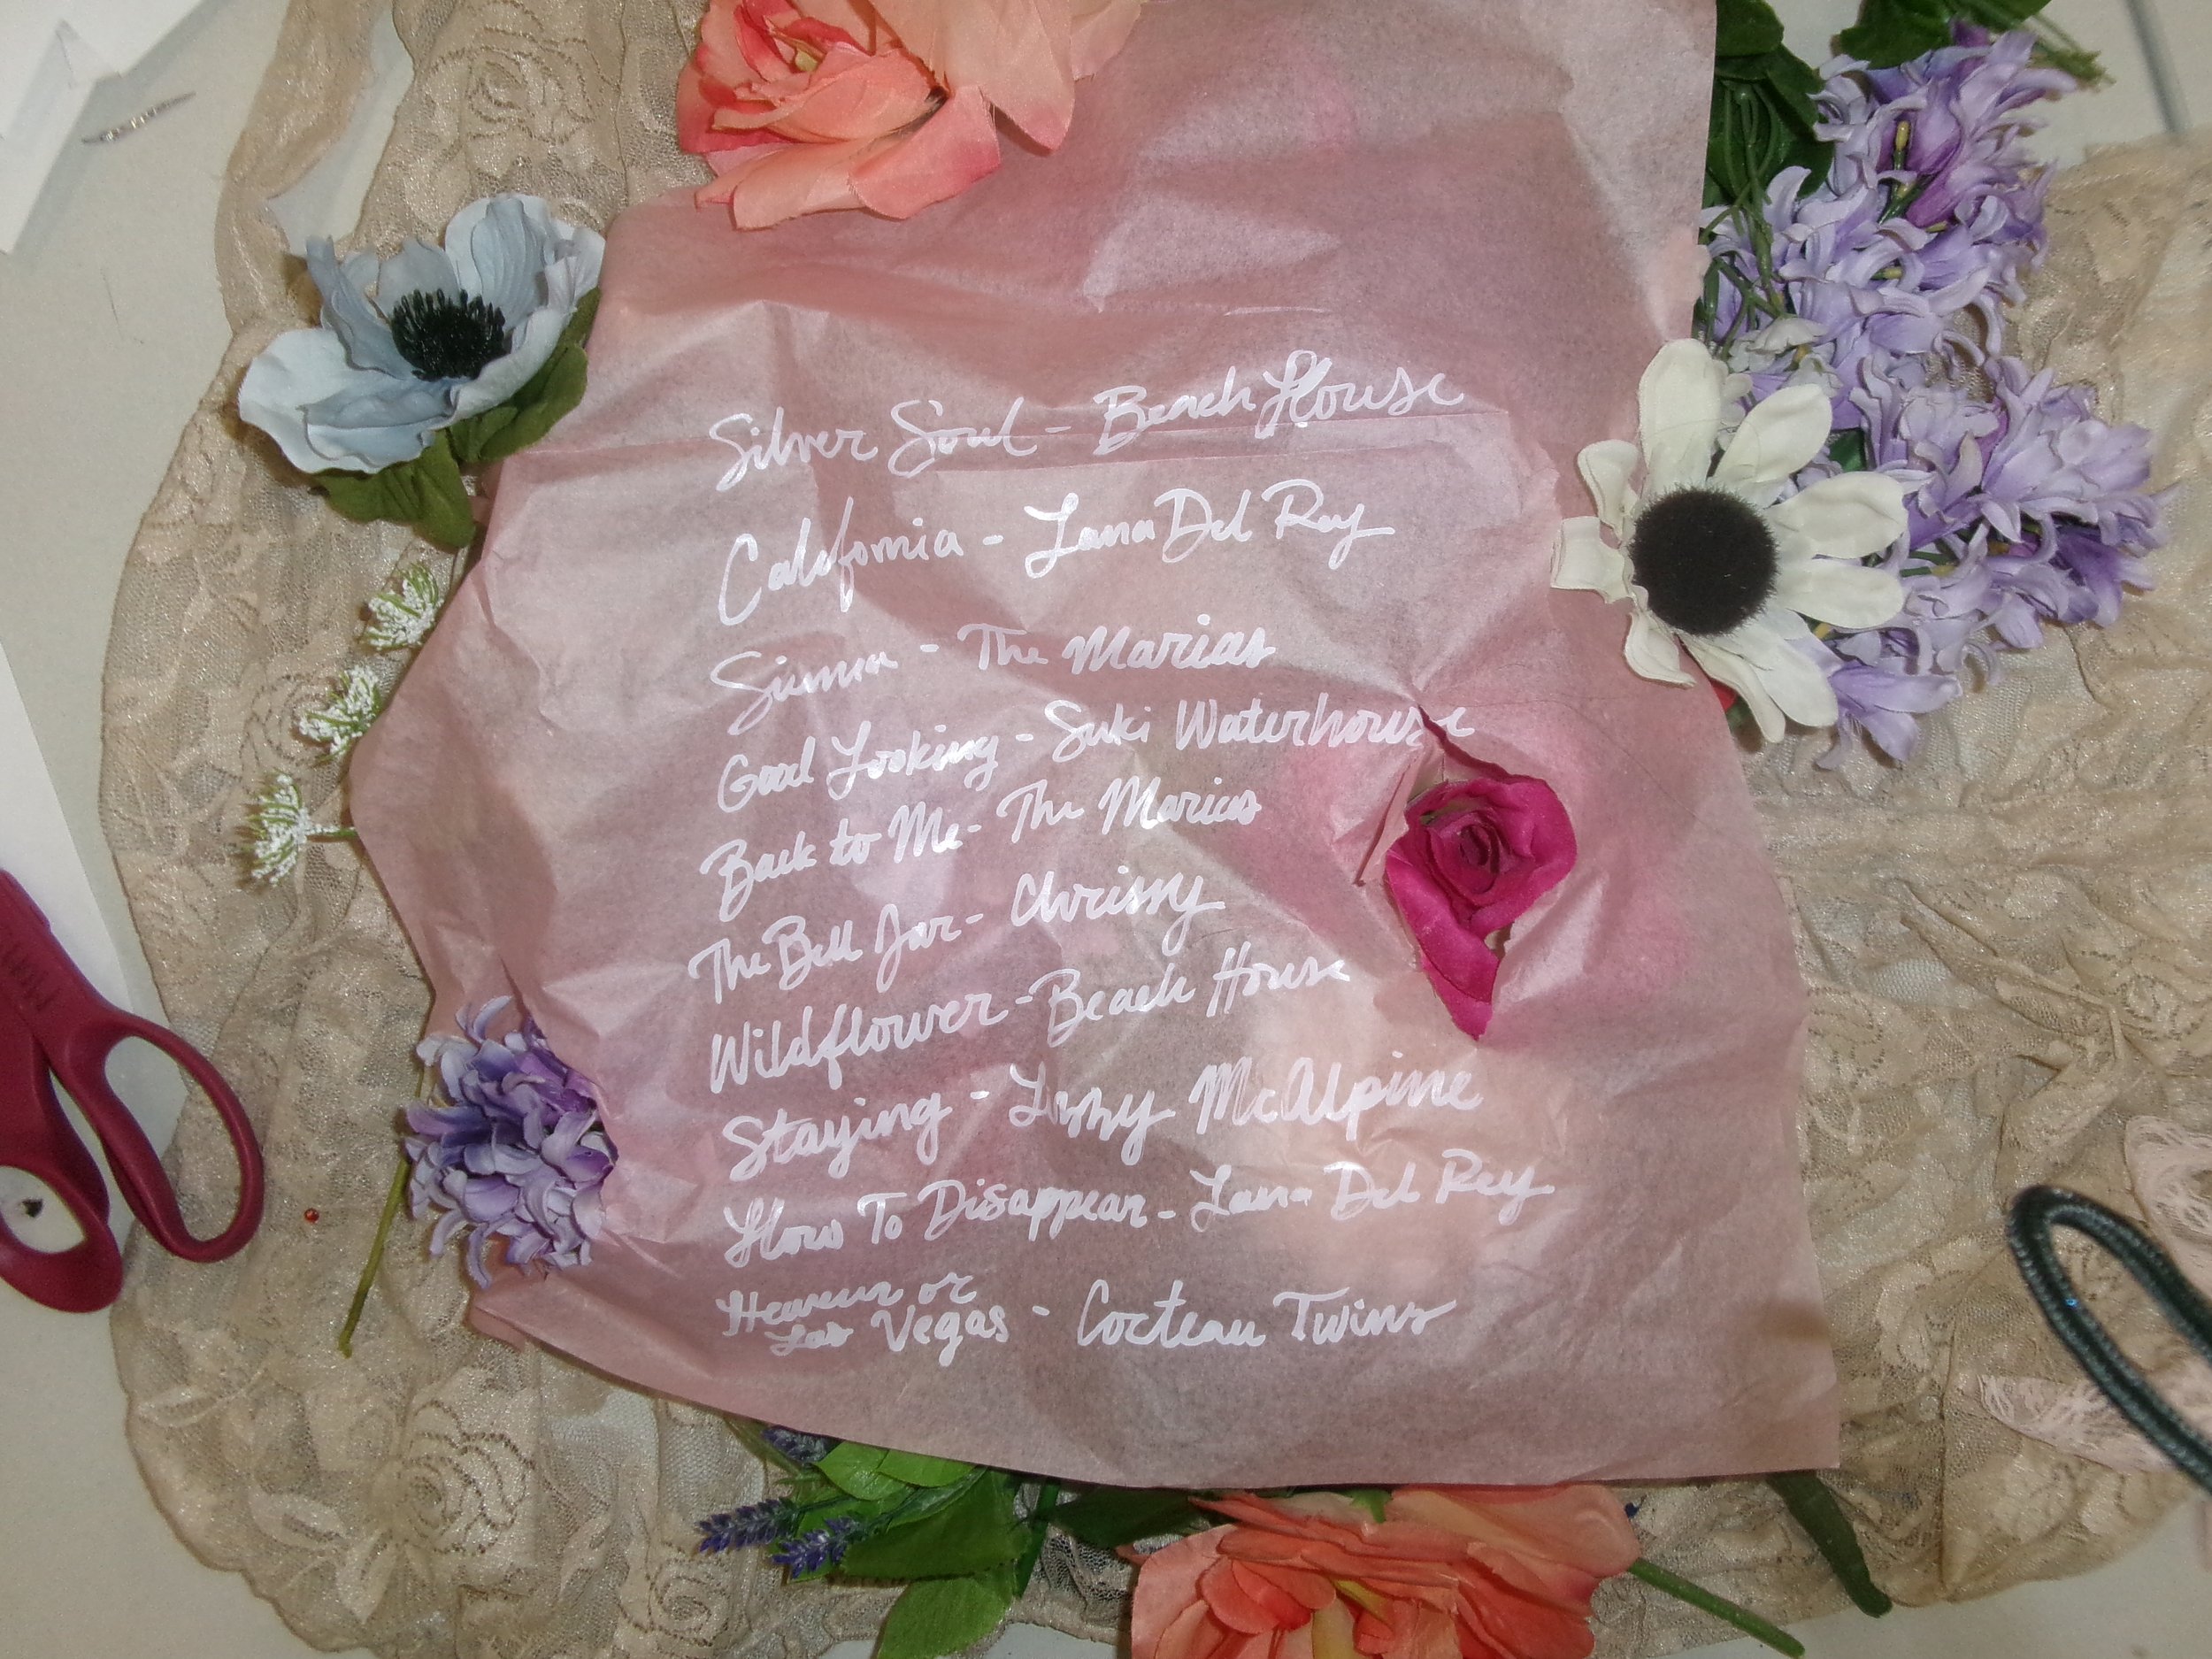 Silver Soul - Beach House
California - Lana Del Rey
Sienna - The Marias
Good Looking - Suki Waterhouse
Back to Me - The Marias
The Bell Jar - Chrissy
Wildflower - Beach House
Staying - Lizzy McAlpine
How To Disappear - Lana Del Rey
Heaven or
Las Vegas - Cocteau Twins